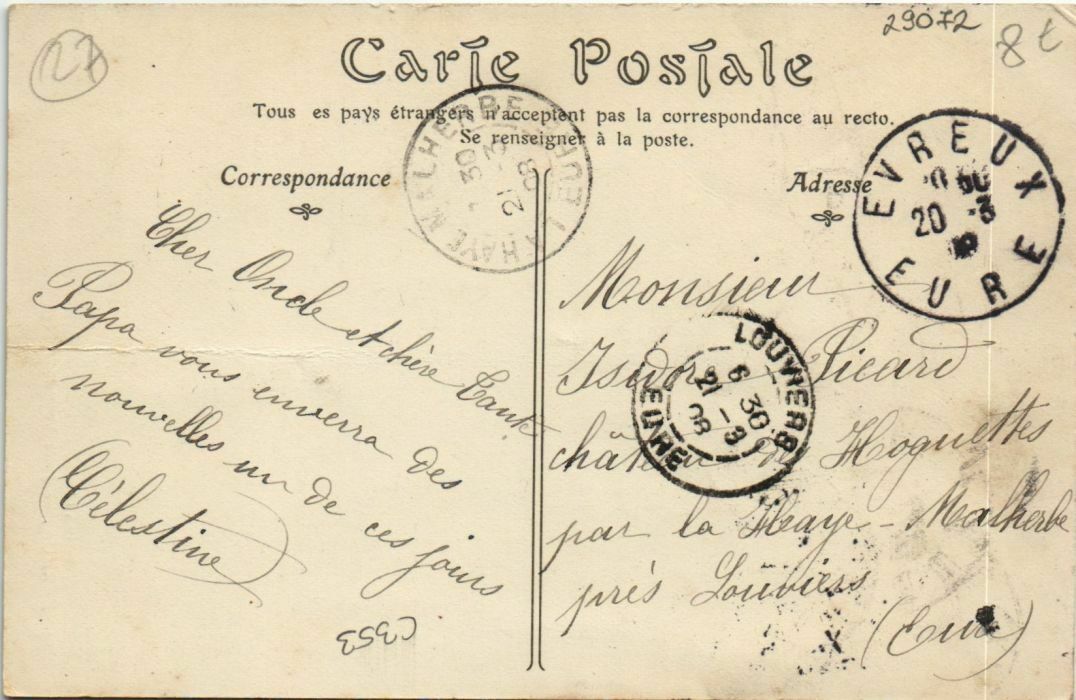 27
29072
8 t
Carte Postale
Tous es pays étrangers n'acceptent pas la correspondance au recto.
Se renseigner à la poste.
Correspondance
Adresse
LA HAYE MALHERBE EURE
30
21 -3
08
EVREUX
20 -3
EURE
LOUVIERS
6 30
21 -3
08
EURE
Cher Oncle et chère Tante
Papa vous enverra des
nouvelles un de ces jours
Célestine
C353
Monsieur
Isidore Picard
château des Hoguettes
par la Haye-Malherbe
près Louviers
(Eure)